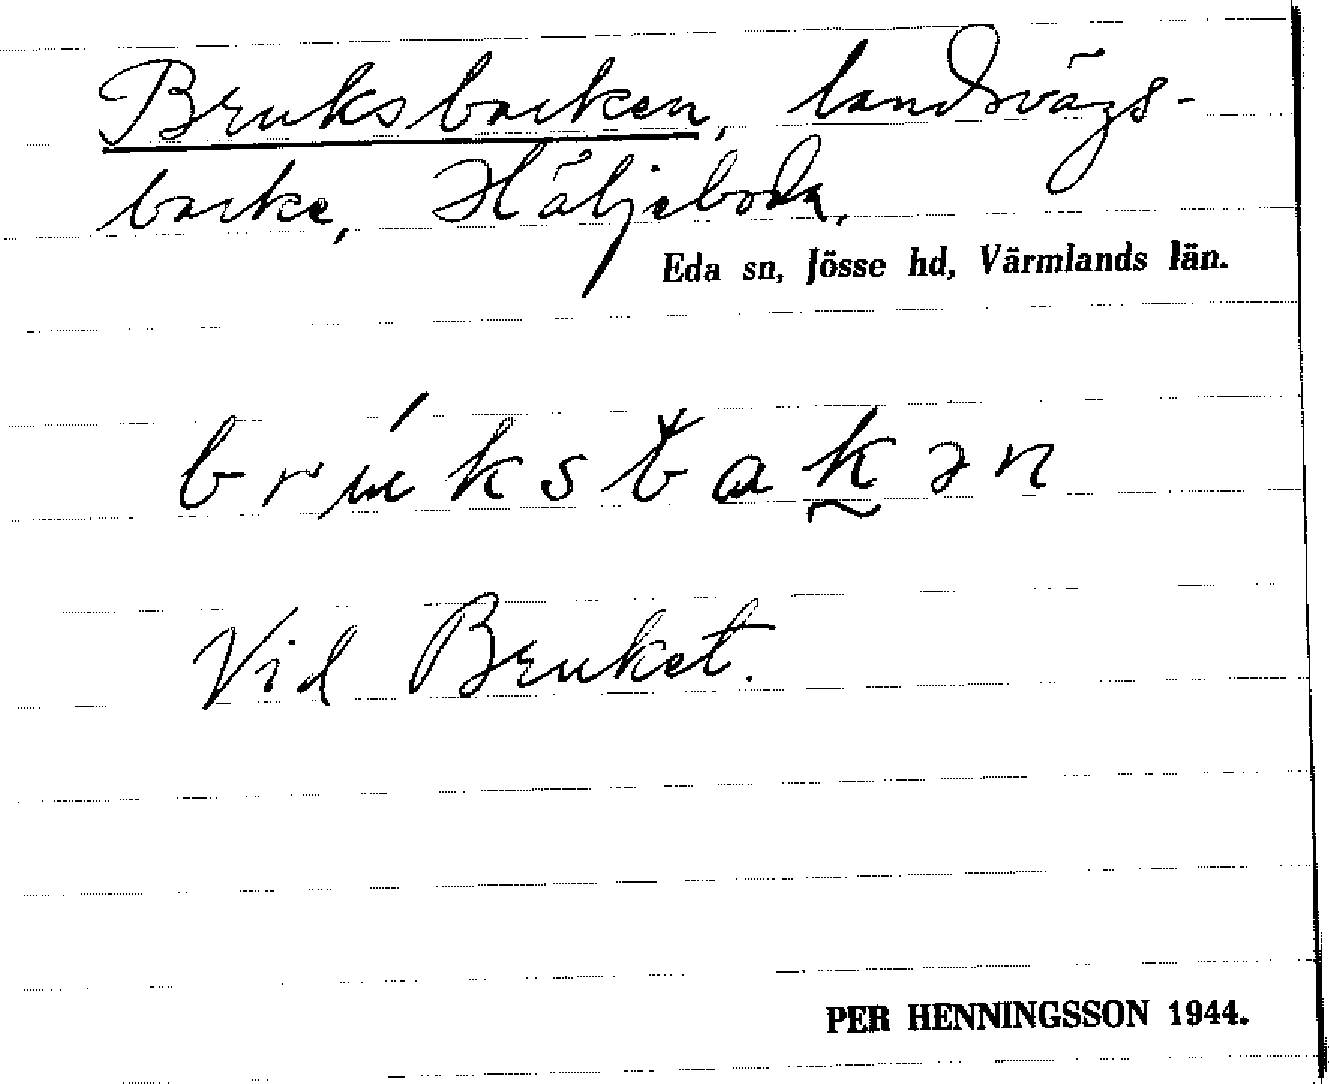 Bruksbacken, landsvägs-
backe, Häljeboda,
Eda sn, Jösse hd, Värmlands län.
Vid Bruket.
PER HENNINGSSON 1944.